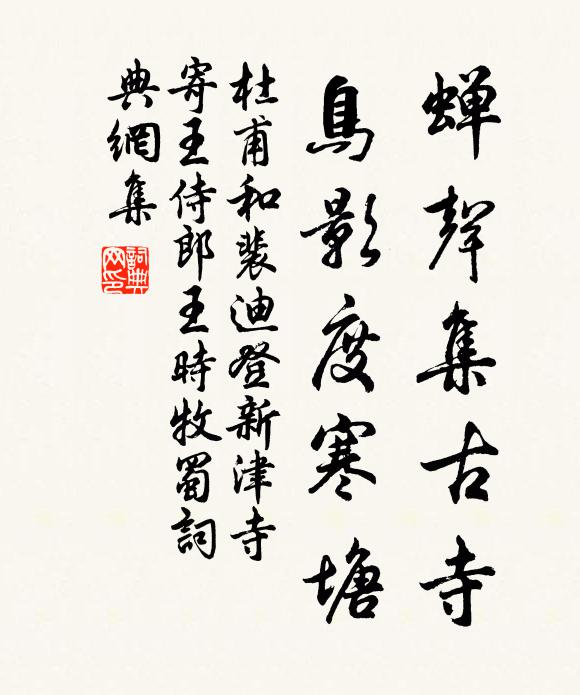 蟬聲集古寺
鳥影度寒塘
杜甫和裴迪登新津寺
寄王侍郎王時牧蜀詞
典網集
詞典
网印